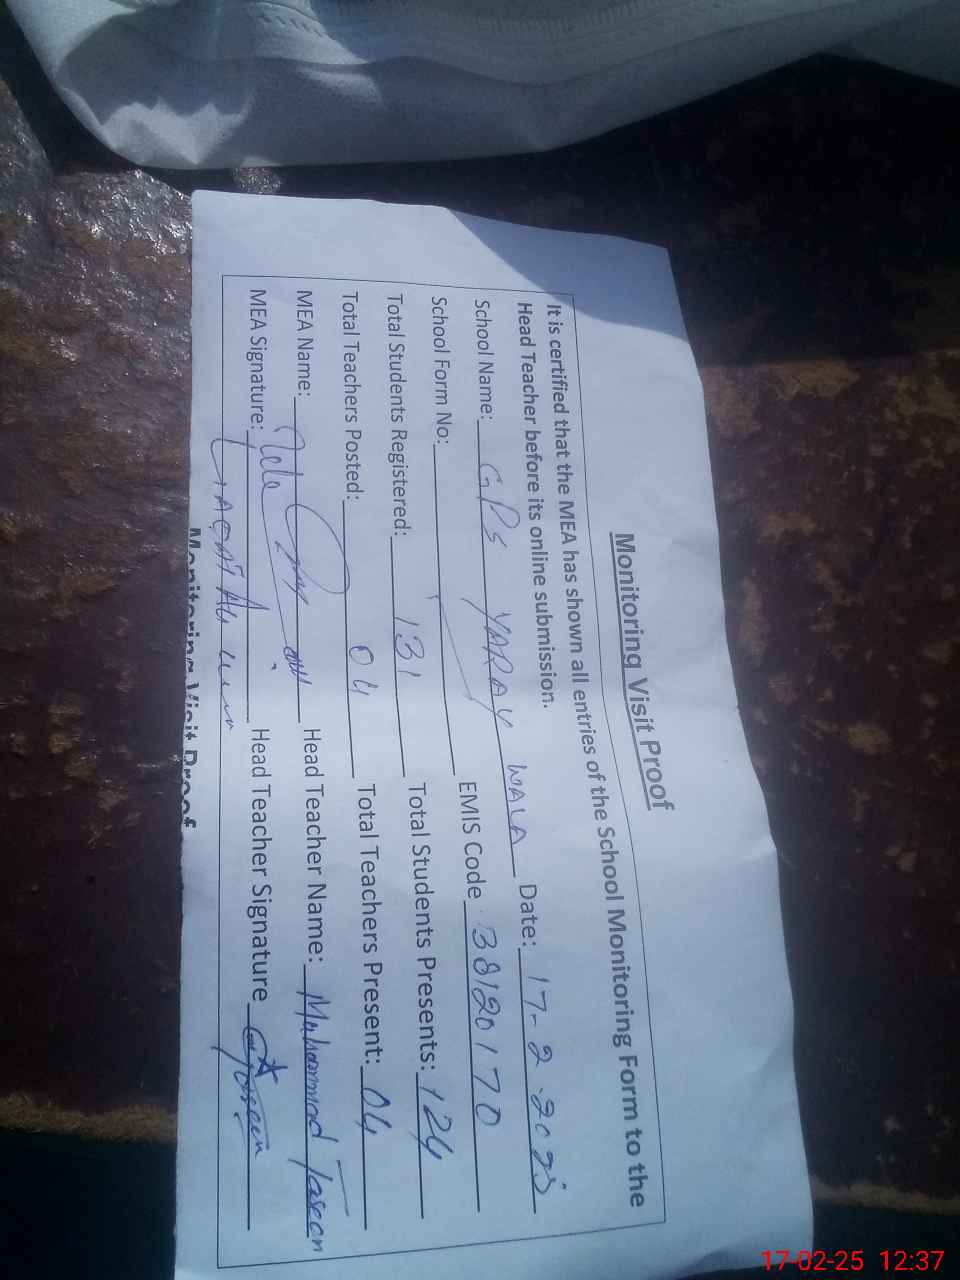 Monitoring Visit Proof
It is certified that the MEA has shown all entries of the School Monitoring Form to the
Head Teacher before its online submission.
School Name: GPS YARAY WALA Date: 17-2-2025
School Form No: EMIS Code 38120170
Total Students Registered: 131 Total Students Presents: 124
Total Teachers Posted: 04 Total Teachers Present: 04
MEA Name: Head Teacher Name: Muhammad Taseen
MEA Signature: Head Teacher Signature Taseen
Monitoring Visit Proof
17-02-25 12:37